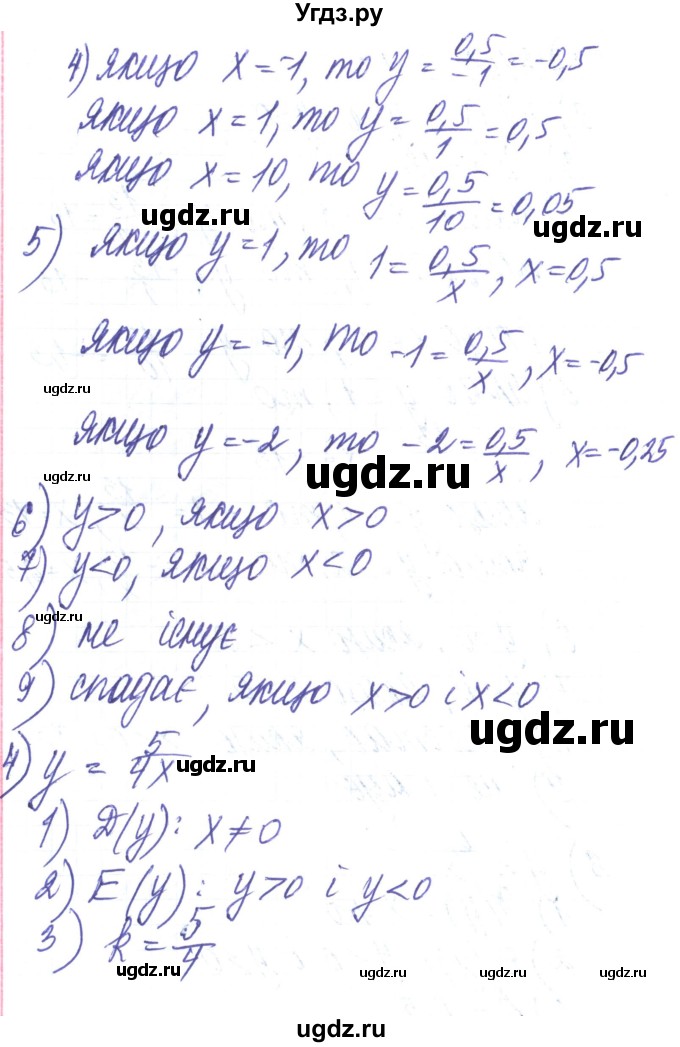 Угдз.ру
4) якщо x = -1, то y = 0,5/-1 = -0,5
якщо x = 1, то y = 0,5/1 = 0,5
якщо x = 10, то y = 0,5/10 = 0,05
ugdz.ru ugdz.ru
5) якщо y = 1, то 1 = 0,5/x, x = 0,5
якщо y = -1, то -1 = 0,5/x, x = -0,5
ugdz.ru
якщо y = -2, то -2 = 0,5/x, x = -0,25
ugdz.ru
6) y > 0, якщо x > 0
7) y < 0, якщо x < 0
ugdz.ru
8) не існує
9) спадає, якщо x > 0 і x < 0
ugdz.ru
4) y = 5/4x
ugdz.ru
1) D(y): x ≠ 0
2) E(y): y > 0 і y < 0
ugdz.ru
3) k = 5/4
ugdz.ru ugdz.ru ugdz.ru
ugdz.ru